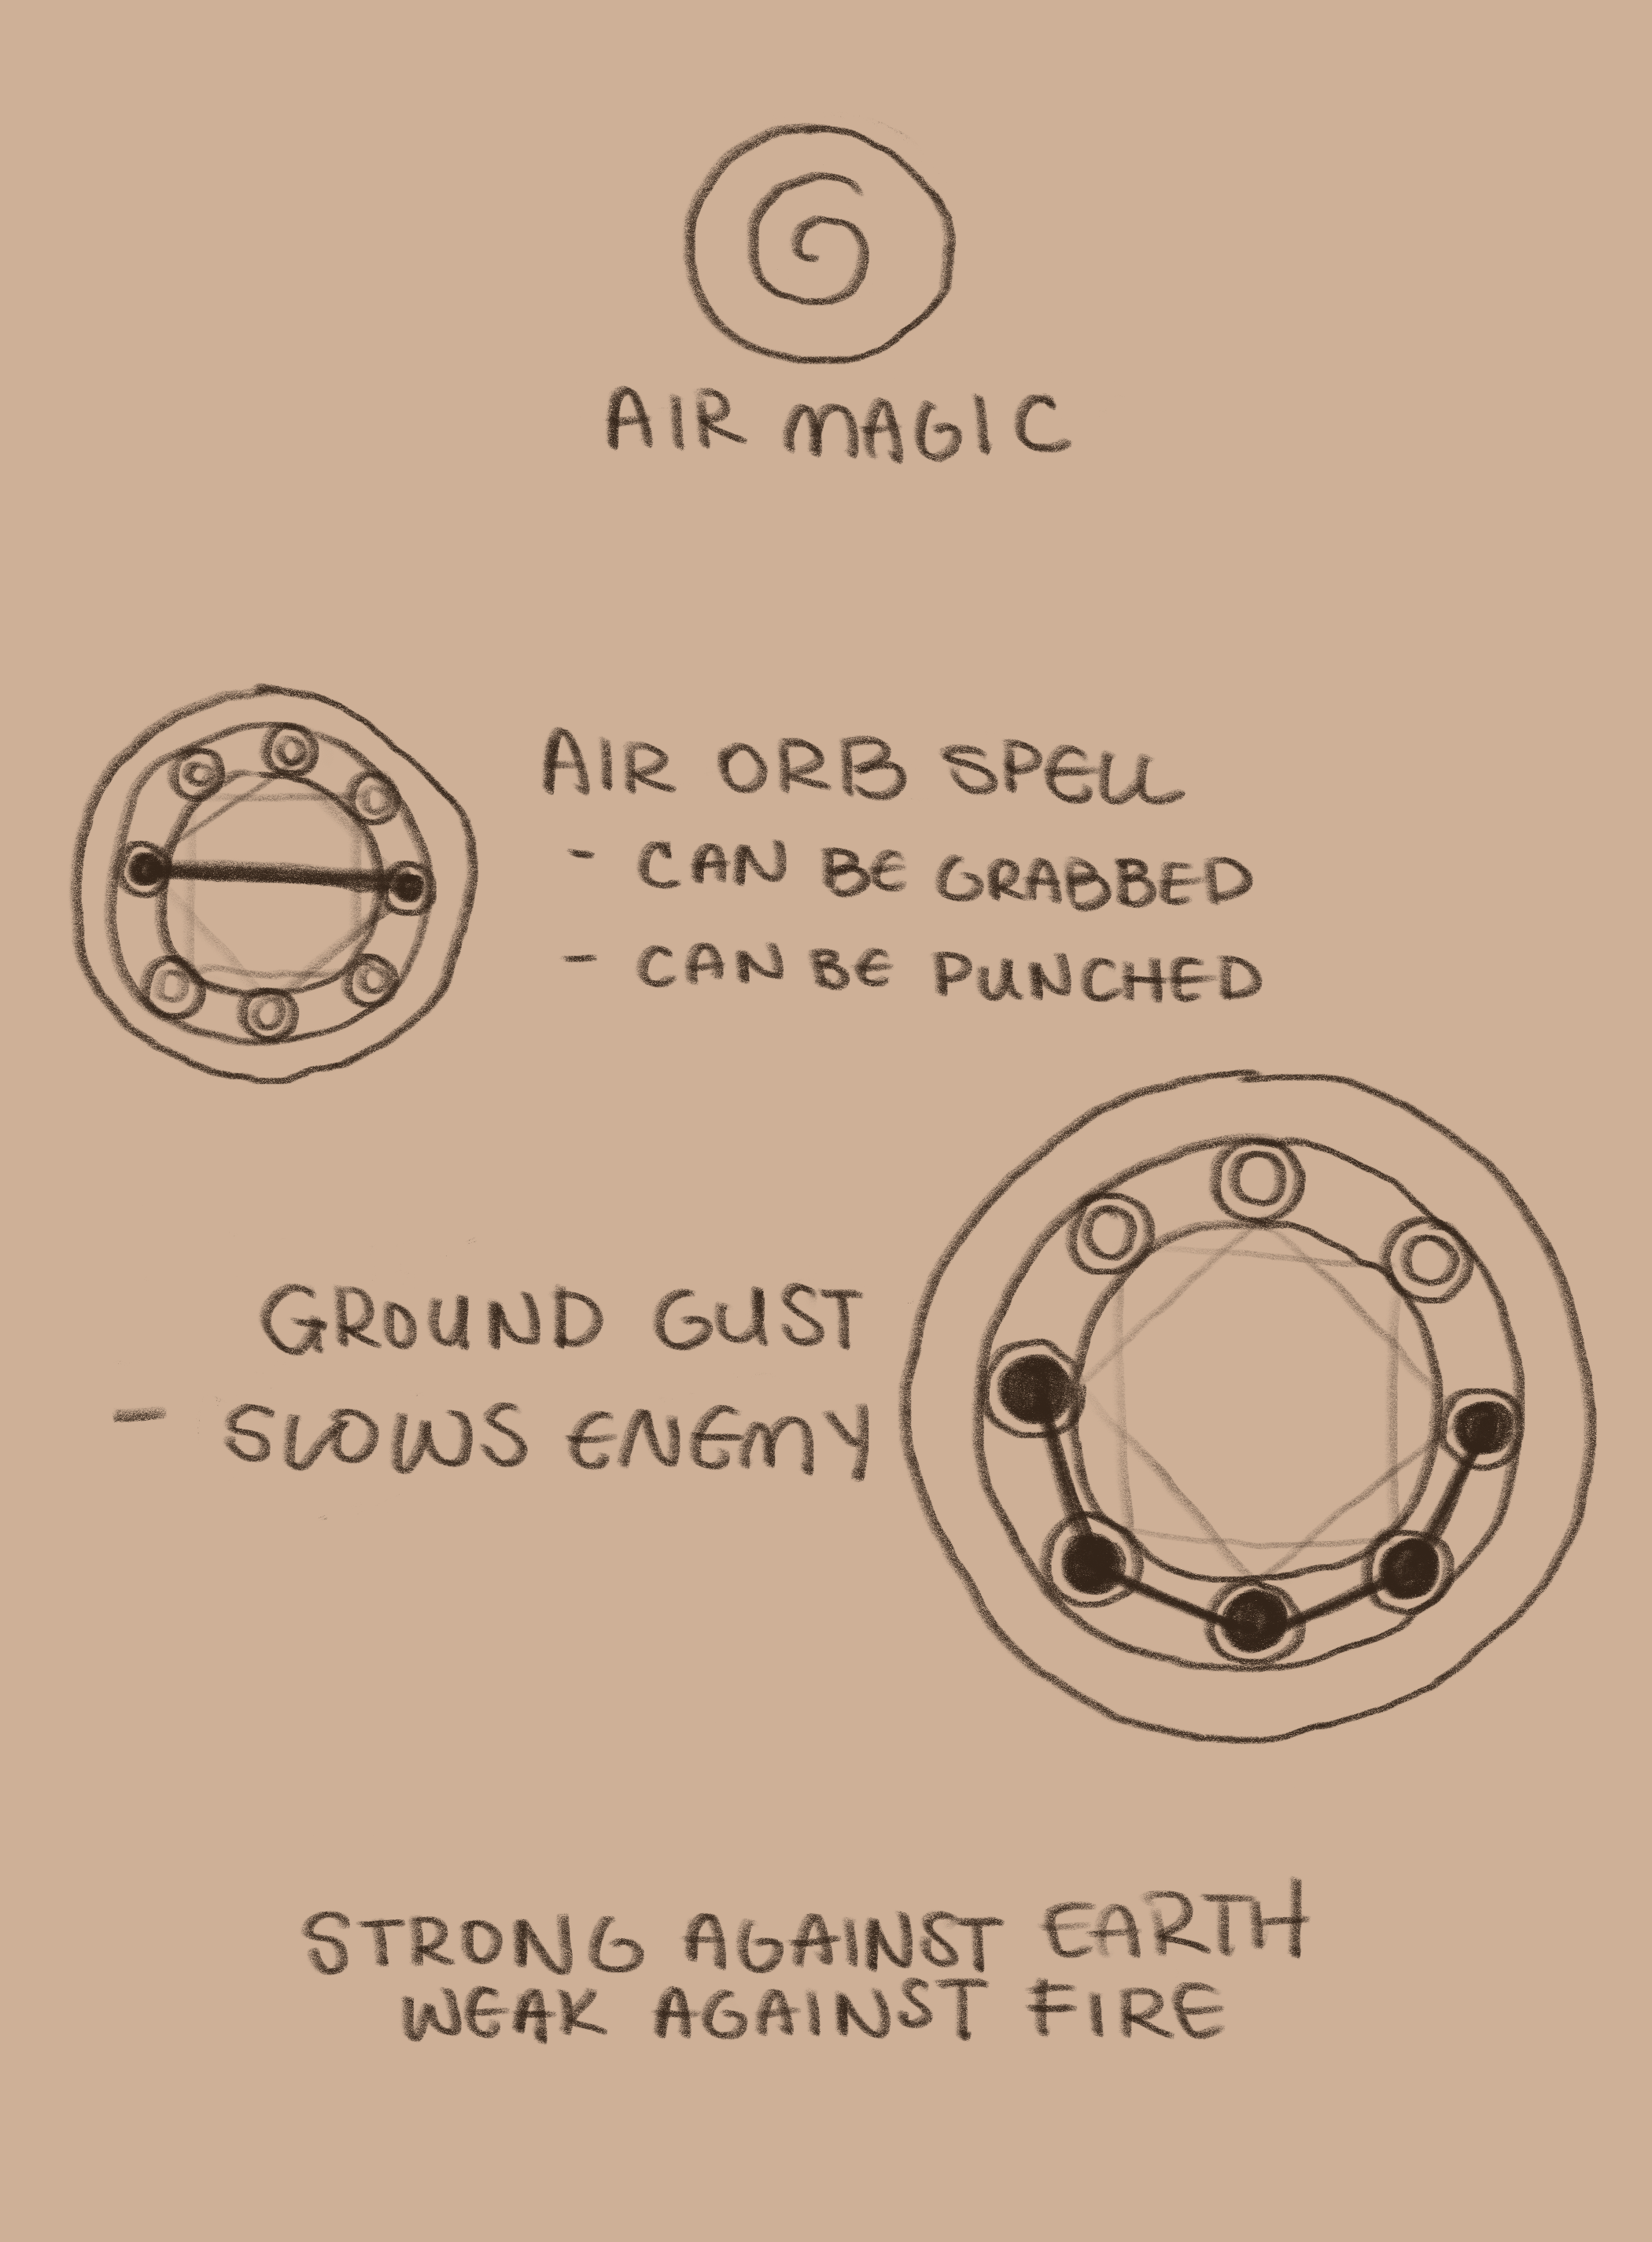 AIR MAGIC
AIR ORB SPELL
- CAN BE GRABBED
- CAN BE PUNCHED
GROUND GUST
- SLOWS ENEMY
STRONG AGAINST EARTH
WEAK AGAINST FIRE